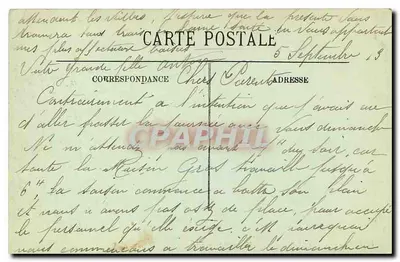 attendant les vôtres, j'espère que la présente vous
trouvera tous trois bonne santé en vous apportant
mes plus affectueux baisers
CARTE POSTALE
5 Septembre 13
Votre grande fille
CORRESPONDANCE
ADRESSE
Chers Parents
Contrairement à l'intention que j'avais eu
d'aller passer la journée avec vous dimanche
Ne m'attendez pas avant du soir, car
toute la Maison travaille jusqu'à
6h La saison commence à battre son plein
et nous n'avons pas assez de place, pour occuper
le personnel qu'elle exige. c'est pourquoi
nous commençons à travailler le dimanche